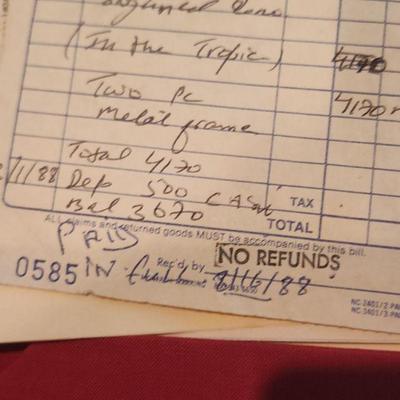 (In the Tropic) 4170
Two pc 4170
metal frame
Total 4170
1/88 Dep 500 CASH TAX
Bal 3670 TOTAL
ALL claims and returned goods MUST be accompanied by this bill.
PAID
0585 IN full Rec'd by NO REFUNDS
8/16/88
NC 3401/2 PA
NC 3401/3 PA